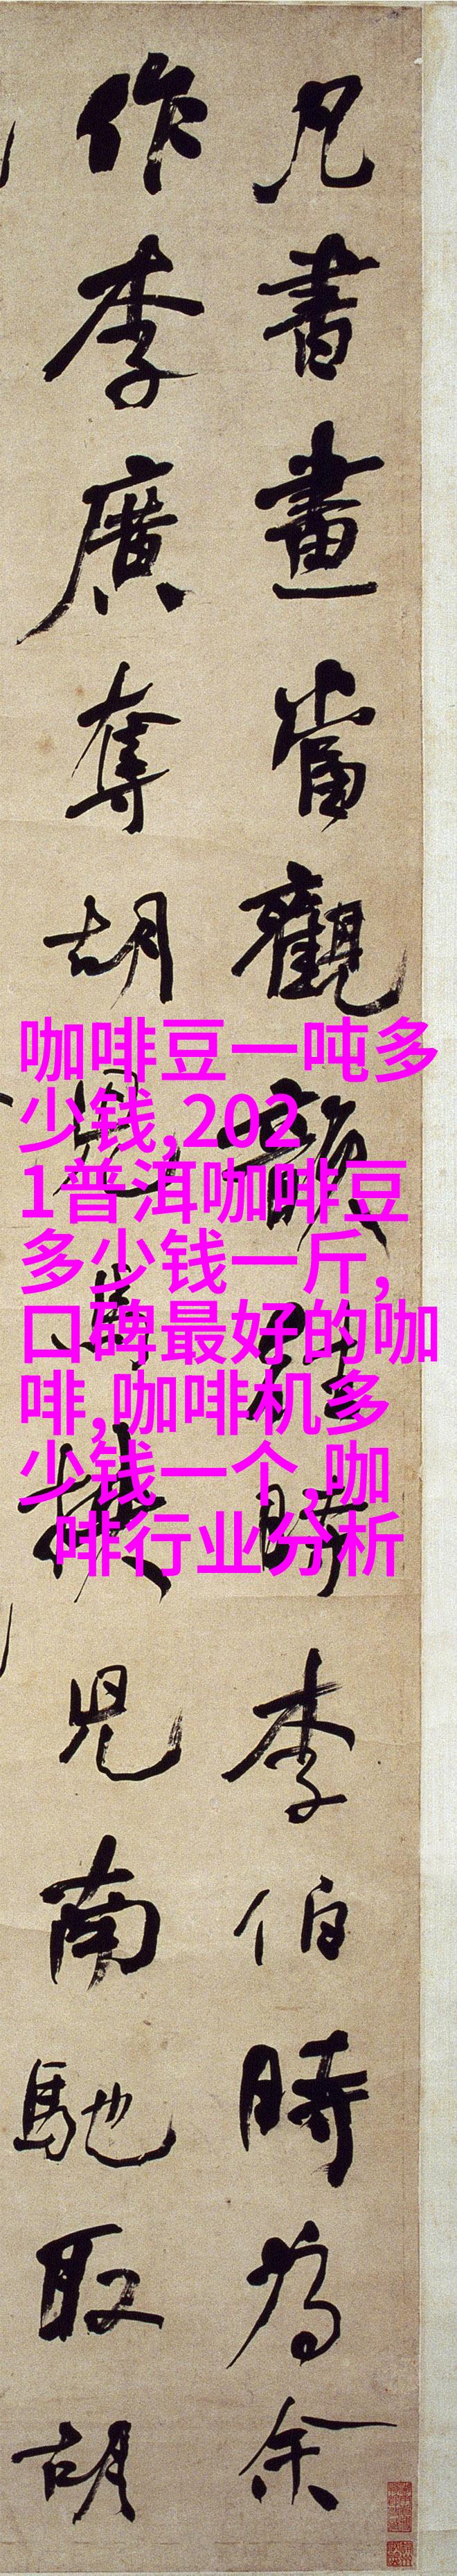 凡書畫當觀韻往時李伯時為余
作李廣奪胡兒馬挾兒南馳取胡
咖啡豆一吨多
少钱,202
1普洱咖啡豆
多少钱一斤,
口碑最好的咖
啡,咖啡机多
少钱一个,咖
啡行业分析